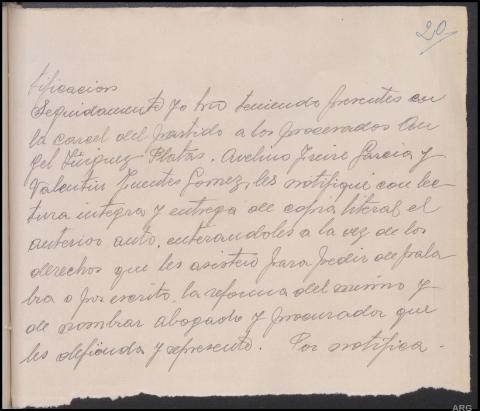 20
tificacion
Seguidamente yo hno teniendo presentes en
la carcel del partido a los procesados An
gel Iñiguez Platas, Avelino Freire Garcia y
Valentin Fuentes Gomez, les notifique con lec-
tura integra y entrega de copia literal el
anterior auto, enterandoles a la vez de los
derechos que les asisten para pedir de pala-
bra o por escrito, la reforma del mismo y
de nombrar abogado y procurador que
les defienda y represente. Por notifica-
ARG